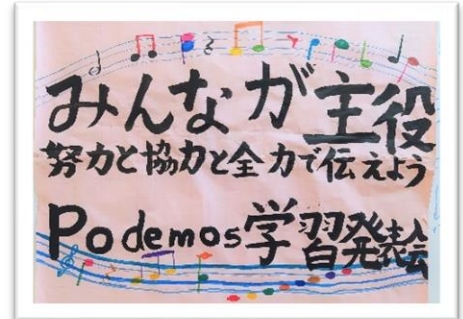 みんなが主役
努力と協力と全力で伝えよう
Podemos学習発表会